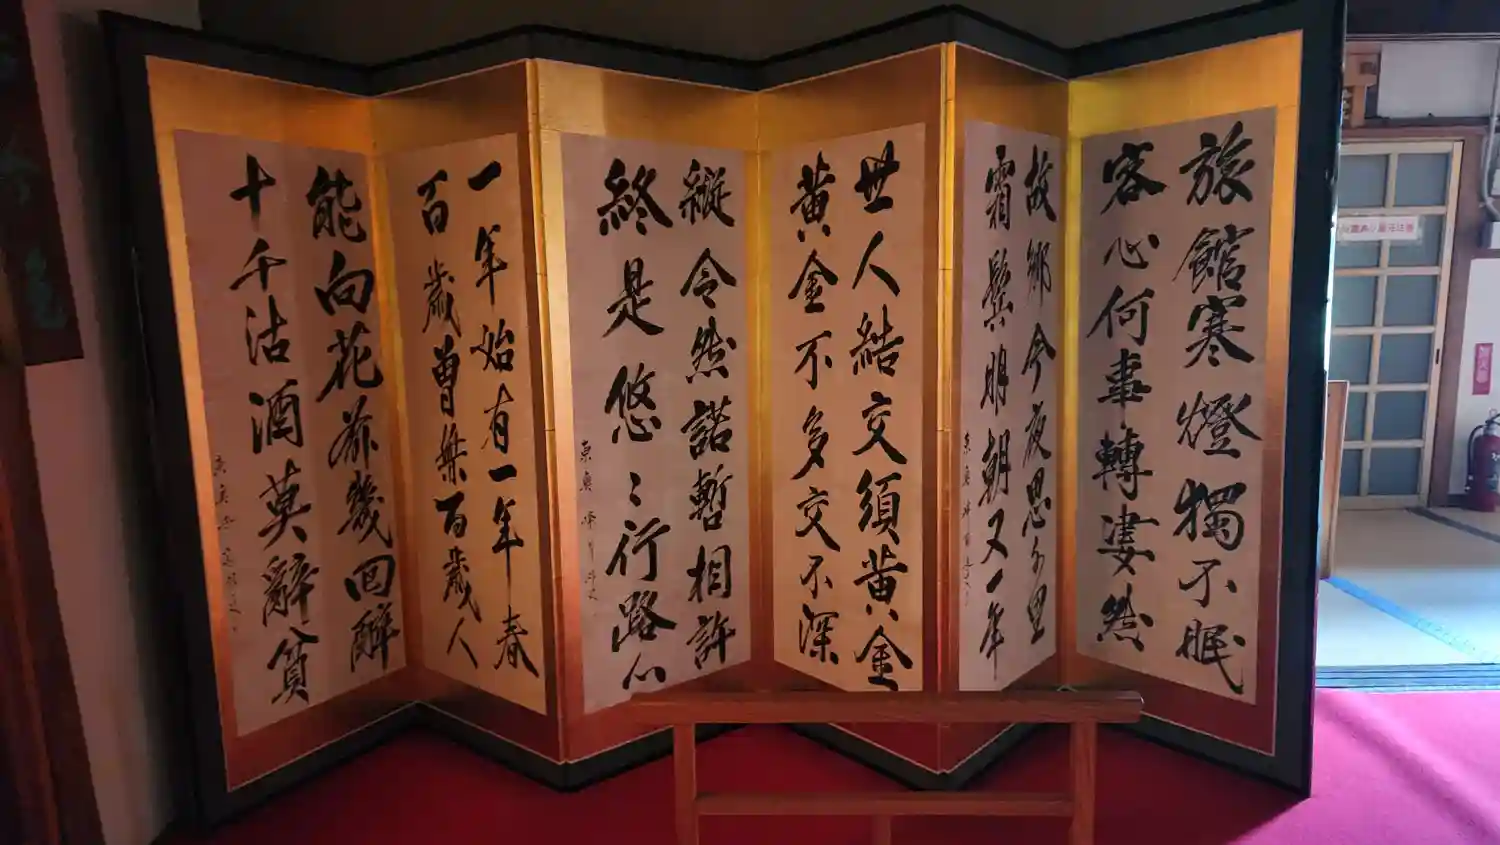 旅館寒燈獨不眠
客心何事轉凄然
故鄉今夜思千里
霜鬢明朝又一年
世人結交須黄金
黄金不多交不深
縱令然諾暫相許
終是悠〻行路心
一年始有一年春
百歲曾無百歲人
能向花前幾回醉
十千沽酒莫辭貧